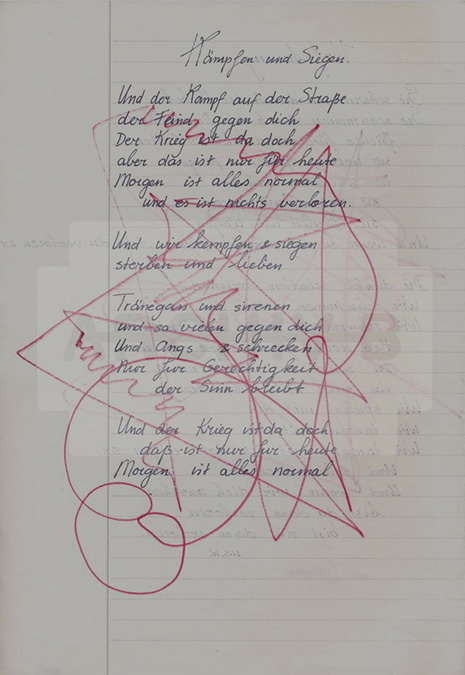 Kämpfen und Siegen.
Und der Kampf auf der Straße
der Feind gegen dich
Der Krieg ist da doch
aber das ist nur für heute
Morgen ist alles normal
und es ist nichts verloren.
Und wir kempfen & siegen
sterben und lieben
Tränegas und sirenen
und so vielen gegen dich
Und Angs & schrecken
Nur für Gerechtigkeit
der Sinn bleibt
Und der Krieg ist da doch
daß ist nur fur heute
Morgen ist alles normal